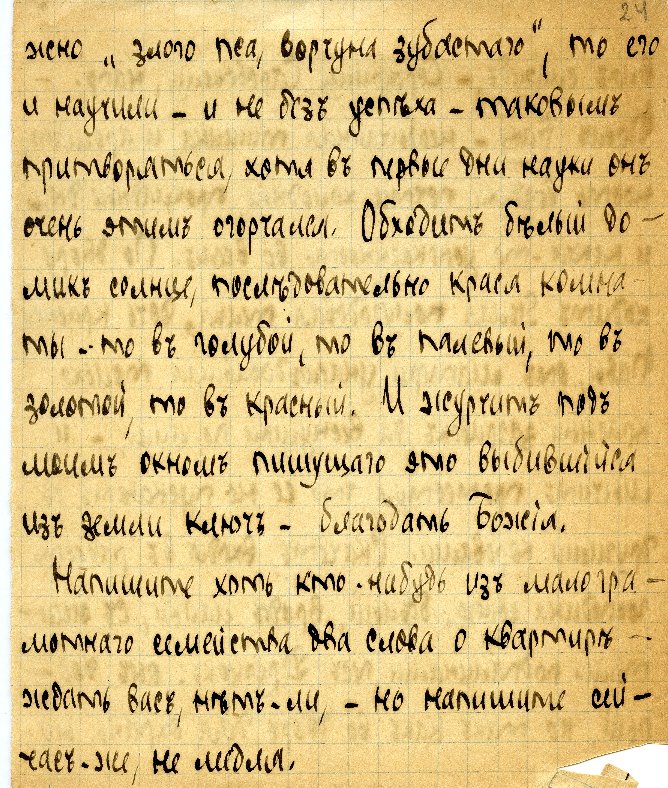 24
жено „злого пса, ворчуна зубастаго“, то его
и научили – и не безъ успѣха – таковымъ
притворяться, хотя въ первые дни науки онъ
очень этимъ огорчался. Обходитъ бѣлый до–
микъ солнце, послѣдовательно крася комна–
ты – то въ голубой, то въ палевый, то въ
золотой, то въ красный. И журчитъ подъ
моимъ окномъ пишущаго это выбившійся
изъ земли ключъ – благодать Божія.
Напишите хоть кто-нибудь изъ малогра–
мотнаго семейства два слова о квартирѣ –
ждать васъ, нѣтъ-ли, – но напишите сей–
часъ-же, не медля.